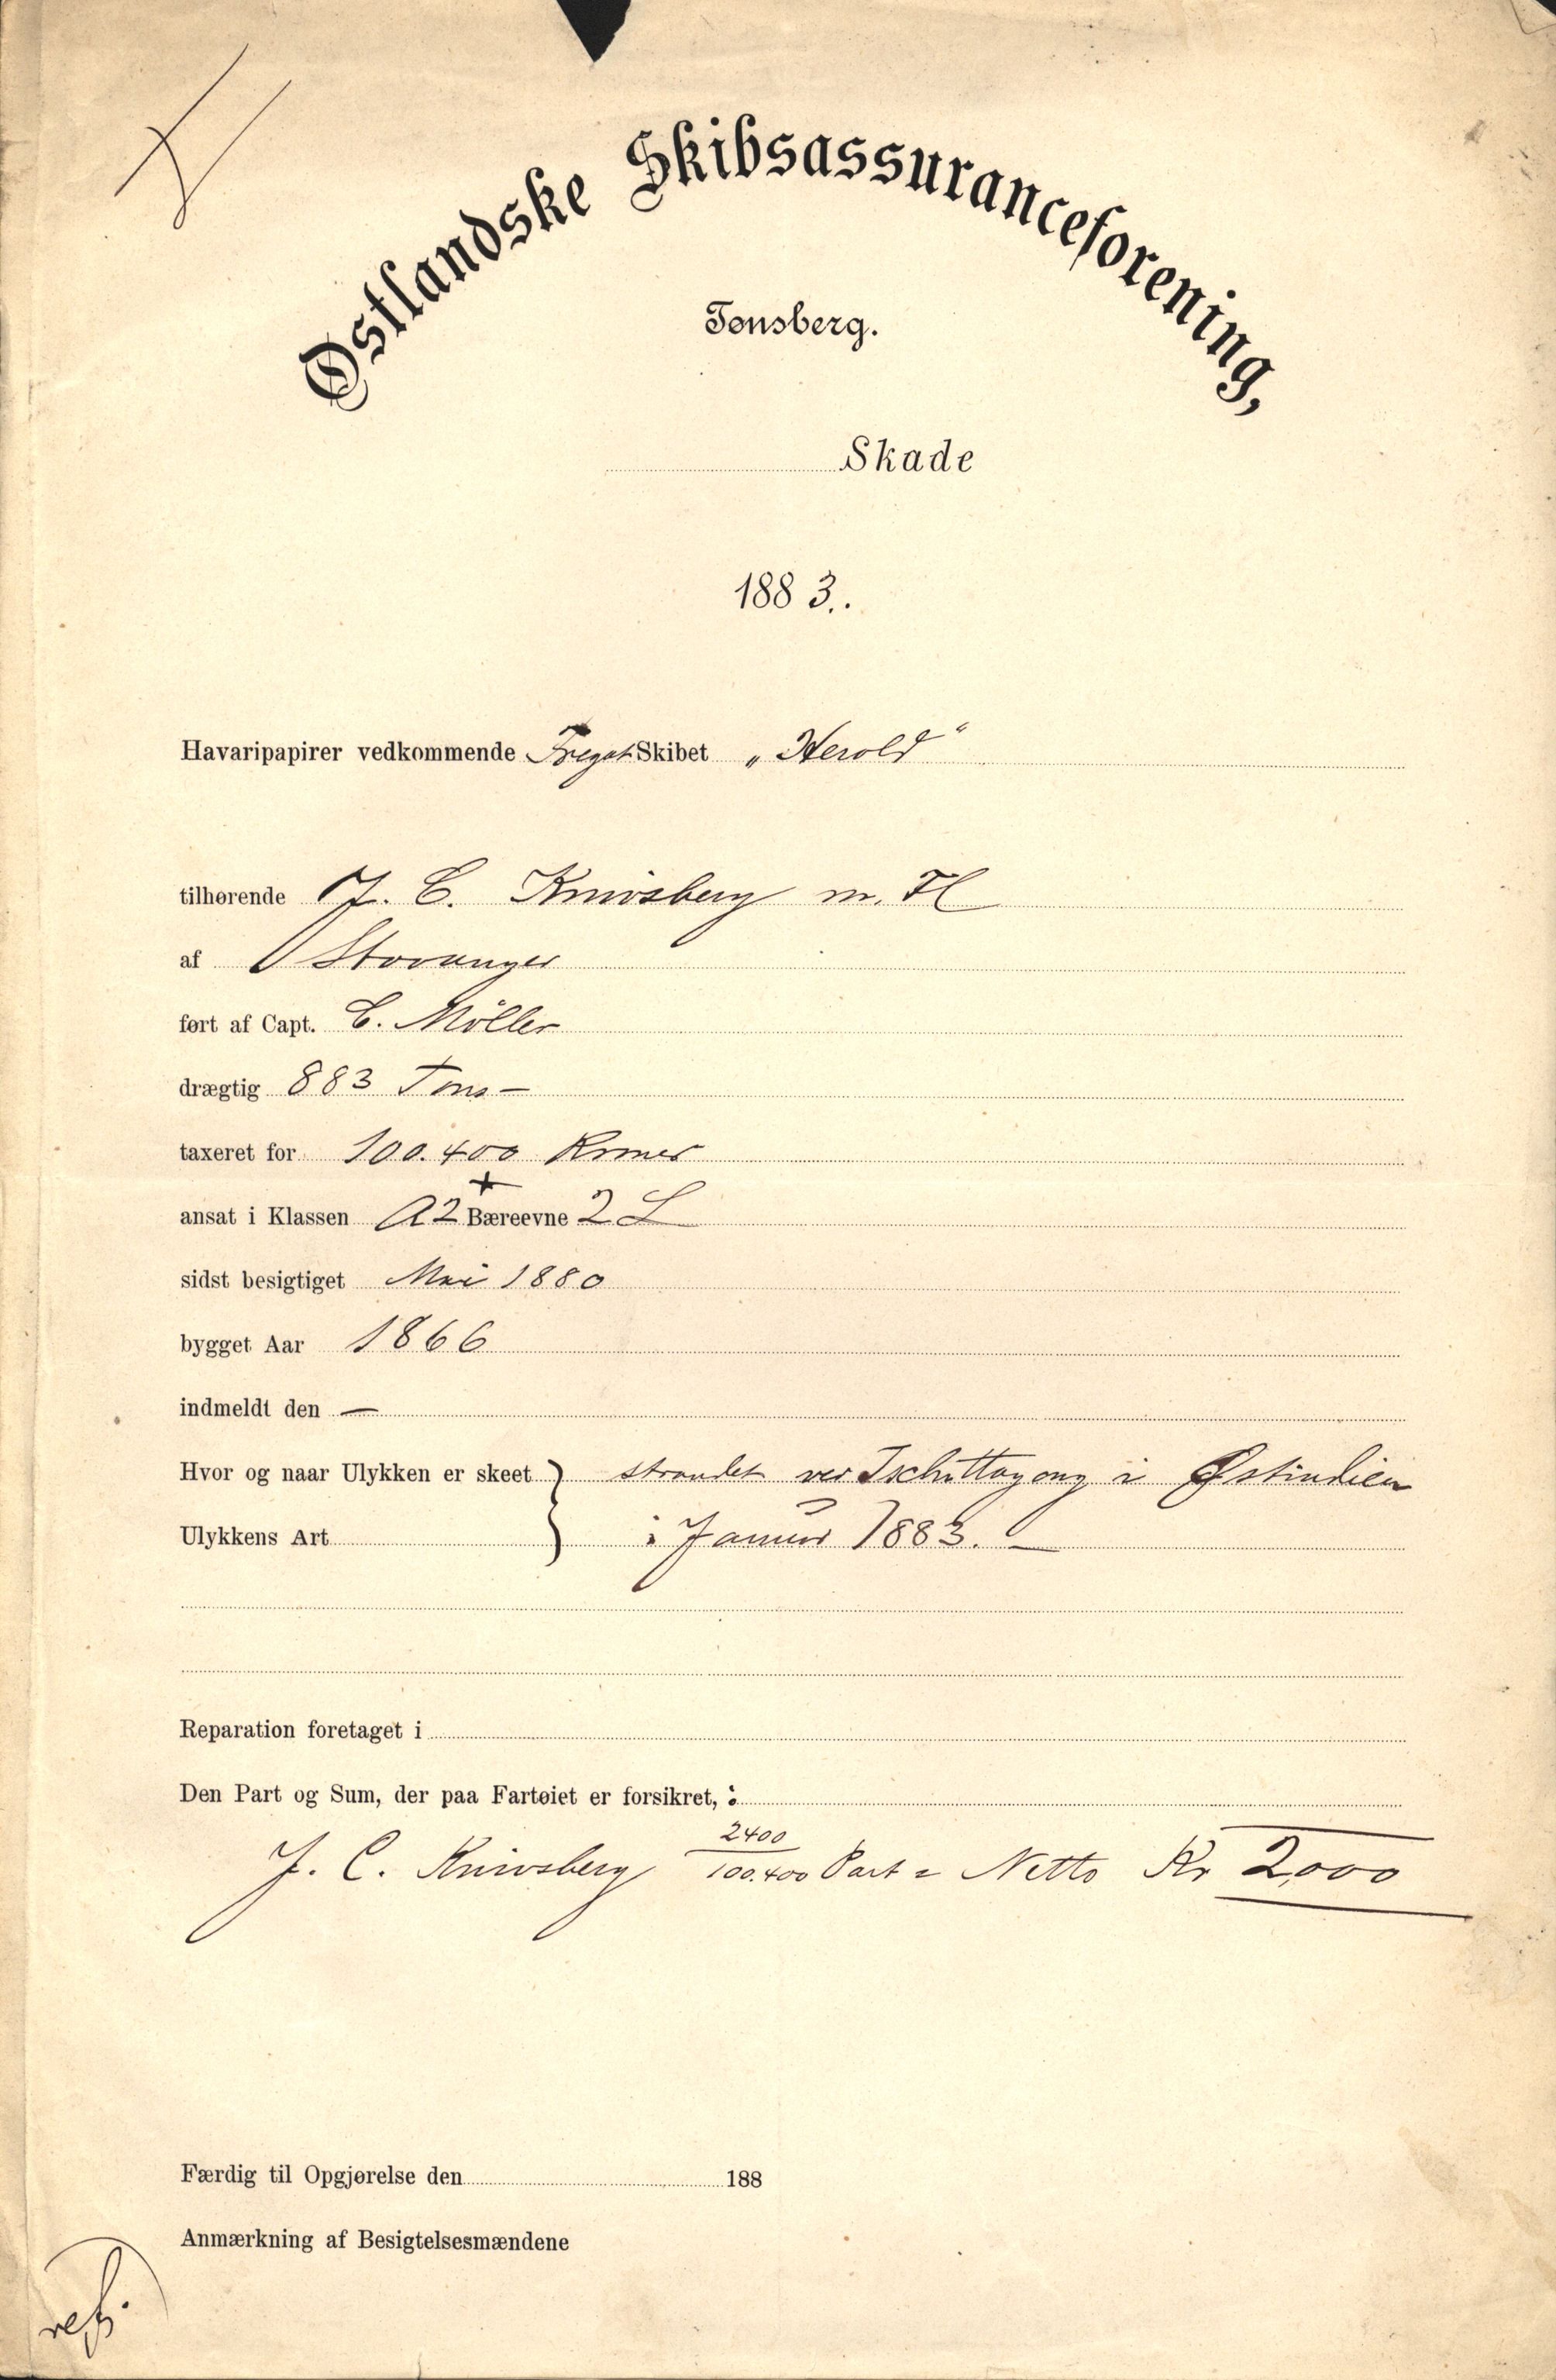 Østlandske Skibsassuranceforening,
Tønsberg.
Skade
1883.
Havaripapirer vedkommende Fregat Skibet „Herold“
tilhørende J. C. Knivsberg m. Fl
af Stavanger
ført af Capt. C. Möller
drægtig 883 Tons –
taxeret for 100.400 Kroner
ansat i Klassen A2 + Bæreevne 2 L
sidst besigtiget Mai 1880
bygget Aar 1866
indmeldt den —
Hvor og naar Ulykken er skeet } strandet ved Tschittagong i Østindien
Ulykkens Art i Januar 1883. –
Reparation foretaget i
Den Part og Sum, der paa Fartøiet er forsikret, :
J. C. Knivsberg 2400/100.400 Part = Netto Kr 2,000
Færdig til Opgjørelse den 188
Anmærkning af Besigtelsesmændene